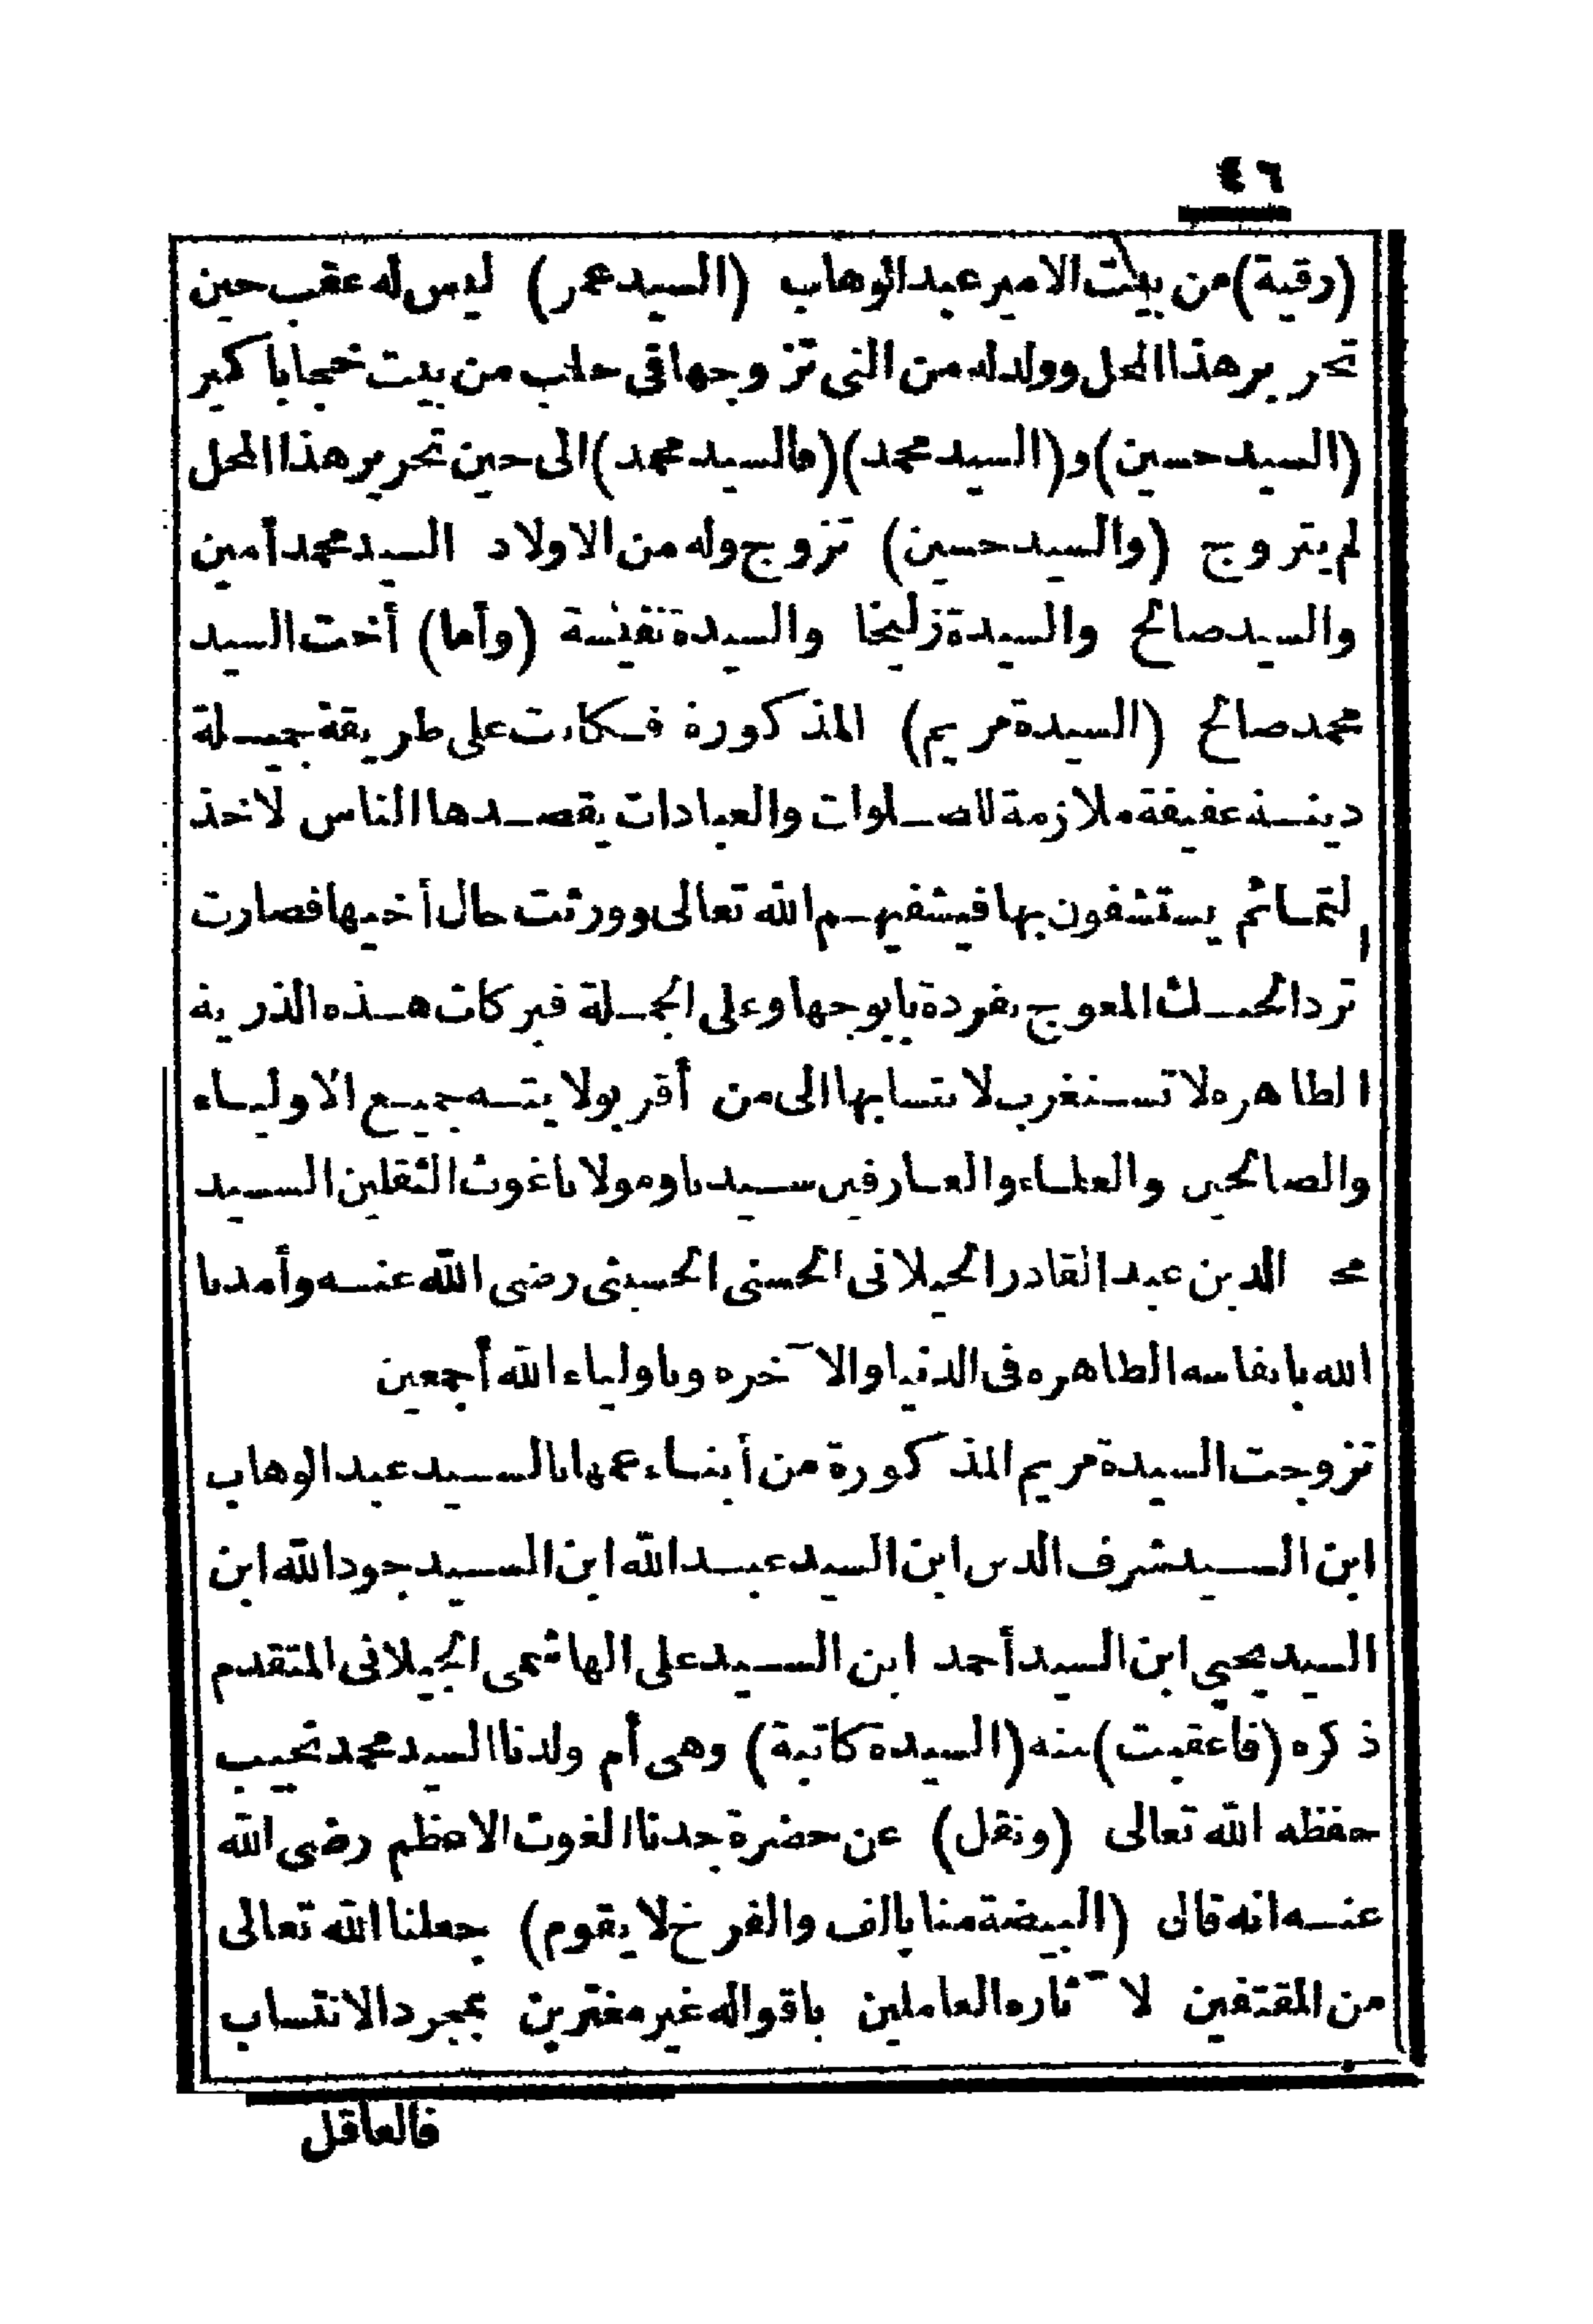 ٤٦
(رقية) من بيت الامير عبد الوهاب (السيد عمر) ليس له عقب حين
تحرير هذا المحل وولد له من التى تزوجها فى حلب من بيت خنجا باكير
(السيد حسين) و (السيد محمد) (فالسيد محمد) الى حين تحرير هذا المحل
لم يتزوج (والسيد حسين) تزوج وله من الاولاد السيد محمد أمين
والسيد صالح والسيدة زليخا والسيدة نفيسة (وأما) أخت السيد
محمد صالح (السيدة مريم) المذكورة فكانت على طريقة جميلة
دينة عفيفة ملازمة للصلوات والعبادات يقصدها الناس لاخذ
التمائم يستشفون بها فيشفيهم الله تعالى وورثت حال أخيها فصارت
ترد الحنك المعوج بفردة بابوجها وعلى الجملة فبركات هذه الذرية
الطاهره لا تستغرب لانتسابها الى من أقر بولايته جميع الاولياء
والصالحين والعلماء والعارفين سيدنا ومولانا غوث الثقلين السيد
الدين عبد القادر الجيلانى الحسنى الحسينى رضى الله عنه وأمدنا
الله بانفاسه الطاهره فى الدنيا والآخره وباولياء الله أجمعين
تزوجت السيدة مريم المذكورة من أبناء عمها بالسيد عبد الوهاب
ابن السيد شرف الدين ابن السيد عبد الله ابن السيد جود الله ابن
السيد يحيى ابن السيد أحمد ابن السيد على الهاشمى الجيلانى المتقدم
ذكره (فاعقبت) منه (السيدة كاتبة) وهى أم ولدنا السيد محمد نجيب
حفظه الله تعالى (ونقل) عن حضرة جدنا الغوث الاعظم رضى الله
عنه انه قال (البيضة منا بالف والفرخ لا يقوم) جعلنا الله تعالى
من المقتفين لآثاره العاملين باقواله غير مغترين بمجرد الانتساب
فالعاقل